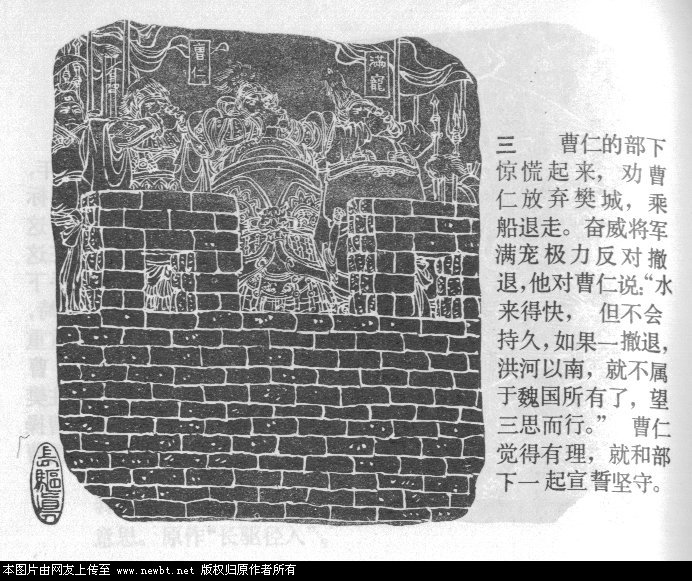 曹仁
滿寵
三　曹仁的部下
惊慌起来，劝曹
仁放弃樊城，乘
船退走。奋威将军
满宠极力反对撤
退，他对曹仁说：“水
来得快，但不会
持久，如果一撤退，
洪河以南，就不属
于魏国所有了，望
三思而行。”　曹仁
觉得有理，就和部
下一起宣誓坚守。
意思。原作“长驱径入”，
本图片由网友上传至 www.newbt.net 版权归原作者所有